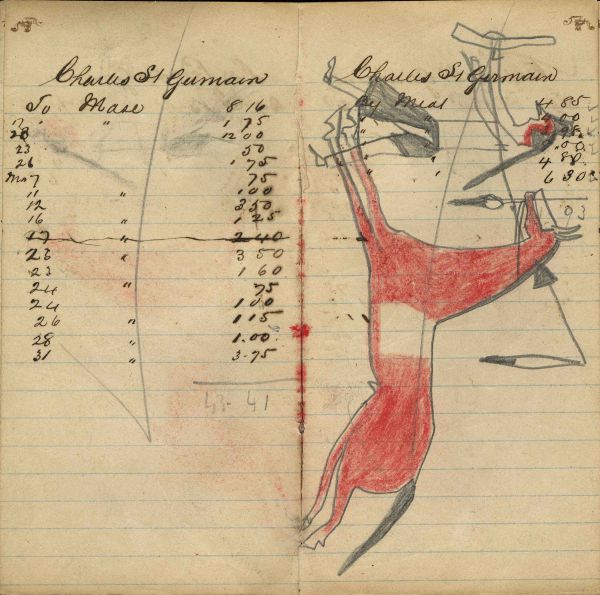 Charles St Germain
To Mase 8 16
" 1 75
28 12 00
23 50
26 1 75
Ma 7 75
11 " 1 00
12 3 50
16 " 1 25
17 " 2 40
23 " 3 50
23 1 60
24 " 75
24 1 00
26 " 1 15
28 " 1.00
31 " 3-75
43-41
Charles St Germain
By Meat 4 85
" "
" "
" 4
6 30
93